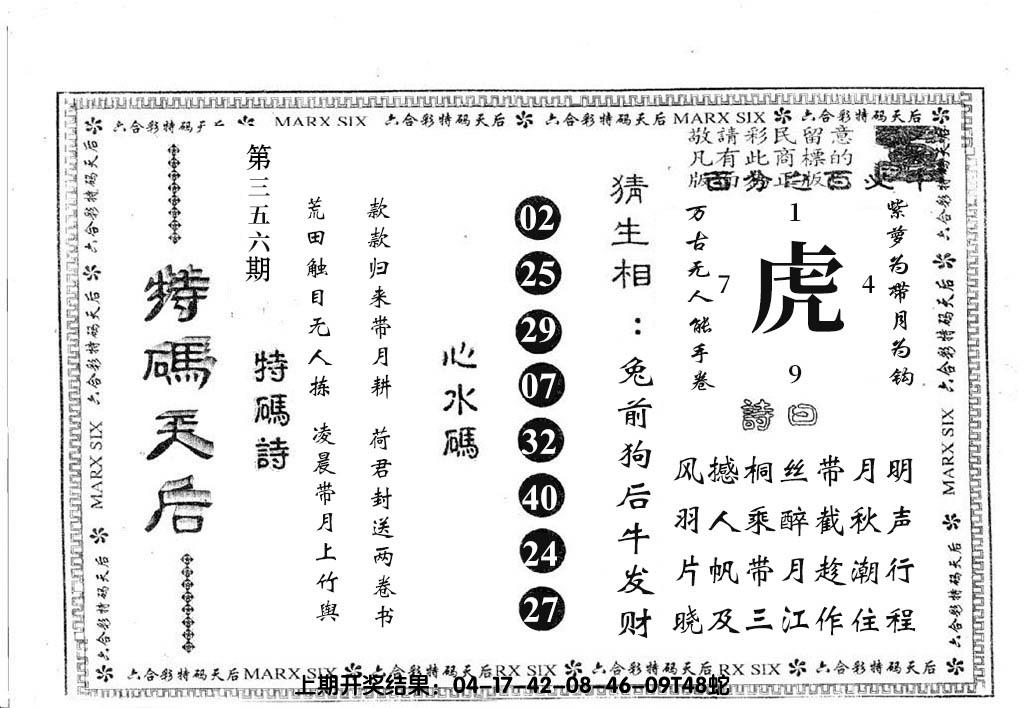 六合彩特码天后 MARX SIX 六合彩特码天后 六合彩特码天后 MARX SIX 六合彩特码天后
六合彩特码天后 六合彩特码天后 MARX SIX 六合彩特码天后
特碼天后
第三五六期
特碼詩
荒田触目无人拣 凌晨带月上竹舆
款款归来带月耕 荷君封送两卷书
心水碼
02
25
29
07
32
40
24
27
猜生相：兔前狗后牛发财
敬請彩民留意
凡有此商標的
版面为正版
万古无人能手卷
1
7
虎
4
9
紫萝为带月为钩
詩曰
风撼桐丝带月明
羽人乘醉截秋声
片帆带月趁潮行
晓及三江作住程
六合彩特码天后 MARX SIX 六合彩特码天后 六合彩特码天后
六合彩特码天后MARX SIX 六合彩特码天后RX SIX 六合彩特码天后RX SIX 六合彩特码天后
上期开奖结果：04-17-42-08-46-09T48蛇